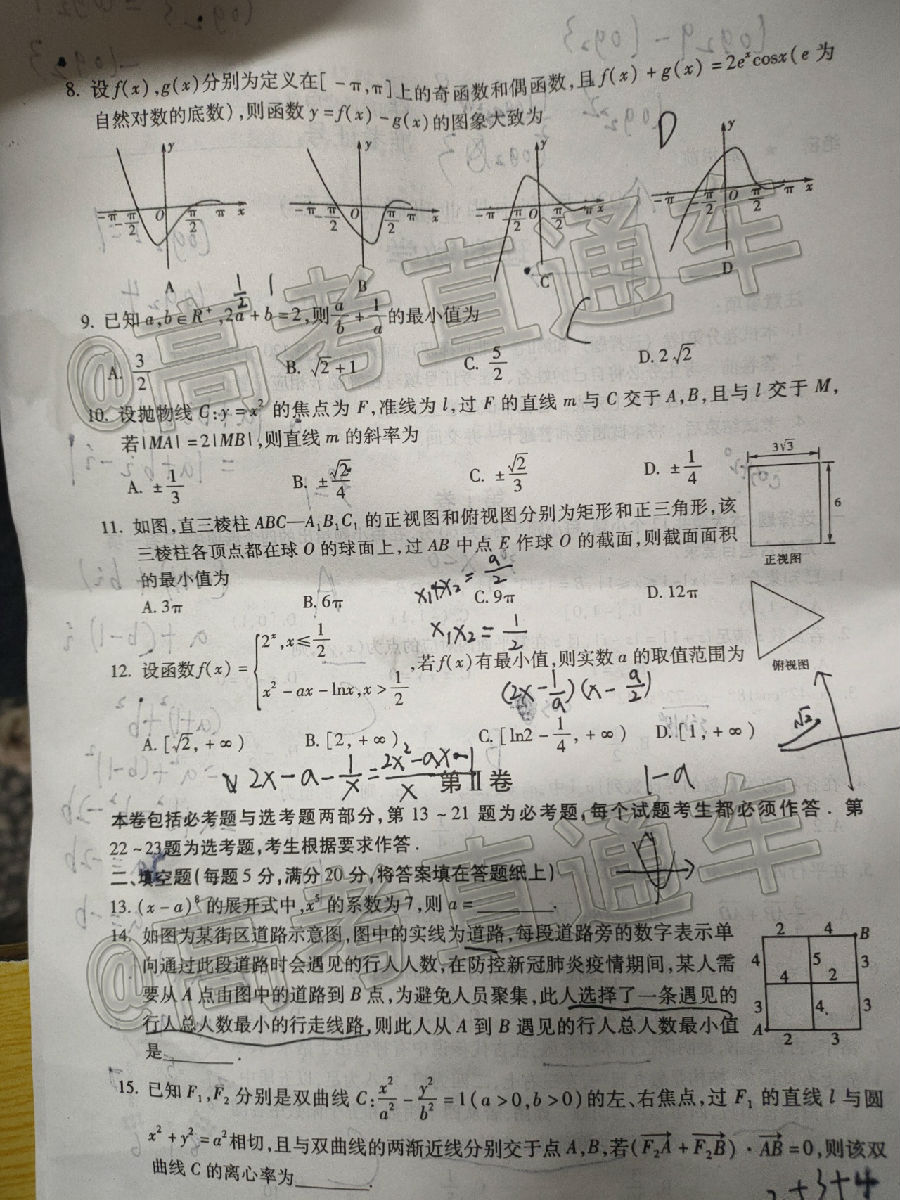 8. 设f(x),g(x)分别为定义在[-π,π]上的奇函数和偶函数,且f(x)+g(x)=2eˣcosx(e为
自然对数的底数),则函数y=f(x)-g(x)的图象大致为
D
y y y y
-π -π/2 O π/2 π x -π -π/2 O π/2 π x -π -π/2 O π/2 π x -π -π/2 O π/2 π x
A B C D
1/2 1
9. 已知a,b∈R⁺,2a+b=2,则a/b+1/a的最小值为
C
A. 3/2 B. √2+1 C. 5/2 D. 2√2
10. 设抛物线C:y=x²的焦点为F,准线为l,过F的直线m与C交于A,B,且与l交于M,
若|MA|=2|MB|,则直线m的斜率为
A. ±1/3 B. ±√2/4 C. ±√2/3 D. ±1/4
3√3
6
正视图
俯视图
11. 如图,直三棱柱ABC—A₁B₁C₁的正视图和俯视图分别为矩形和正三角形,该
三棱柱各顶点都在球O的球面上,过AB中点E作球O的截面,则截面面积
的最小值为
x₁+x₂=a/2
A. 3π B. 6π C. 9π D. 12π
x₁x₂=1/2
12. 设函数f(x)={2ˣ,x≤1/2
x²-ax-lnx,x>1/2 ,若f(x)有最小值,则实数a的取值范围为
(2x-1/a)(x-a/2)
√2
A. [√2,+∞) B. [2,+∞) C. [ln2-1/4,+∞) D. [1,+∞)
2x-a-1/x=(2x²-ax-1)/x
1-a
第Ⅱ卷
本卷包括必考题与选考题两部分,第13~21题为必考题,每个试题考生都必须作答. 第
22~23题为选考题,考生根据要求作答.
二、填空题(每题5分,满分20分,将答案填在答题纸上)
13. (x-a)⁸的展开式中,x⁵的系数为7,则a=________.
14. 如图为某街区道路示意图,图中的实线为道路,每段道路旁的数字表示单
向通过此段道路时会遇见的行人人数,在防控新冠肺炎疫情期间,某人需
要从A点由图中的道路到B点,为避免人员聚集,此人选择了一条遇见的
行人总人数最小的行走线路,则此人从A到B遇见的行人总人数最小值
是________.
2 4 B
4 5 3
4 2
3 4 3
A 2 3
15. 已知F₁,F₂分别是双曲线C:x²/a²-y²/b²=1(a>0,b>0)的左、右焦点,过F₁的直线l与圆
x²+y²=a²相切,且与双曲线的两渐近线分别交于点A,B,若(F₂A+F₂B)·AB=0,则该双
曲线C的离心率为________.
2+3+4
@高考直通车
@高考直通车